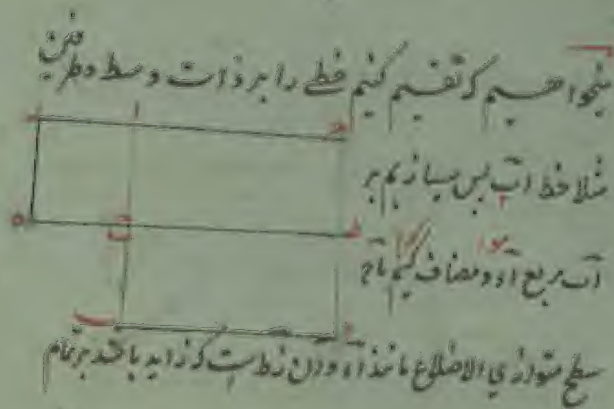 میخواهیم که تقسیم کنیم خطی را بر ذات وسط و طرفین
مثلا خط اب پس میسازیم بر
اب مربع اد و مضاف کنیم باج
سطح متوازی الاضلاع مانند که زاید باشد بر تمام